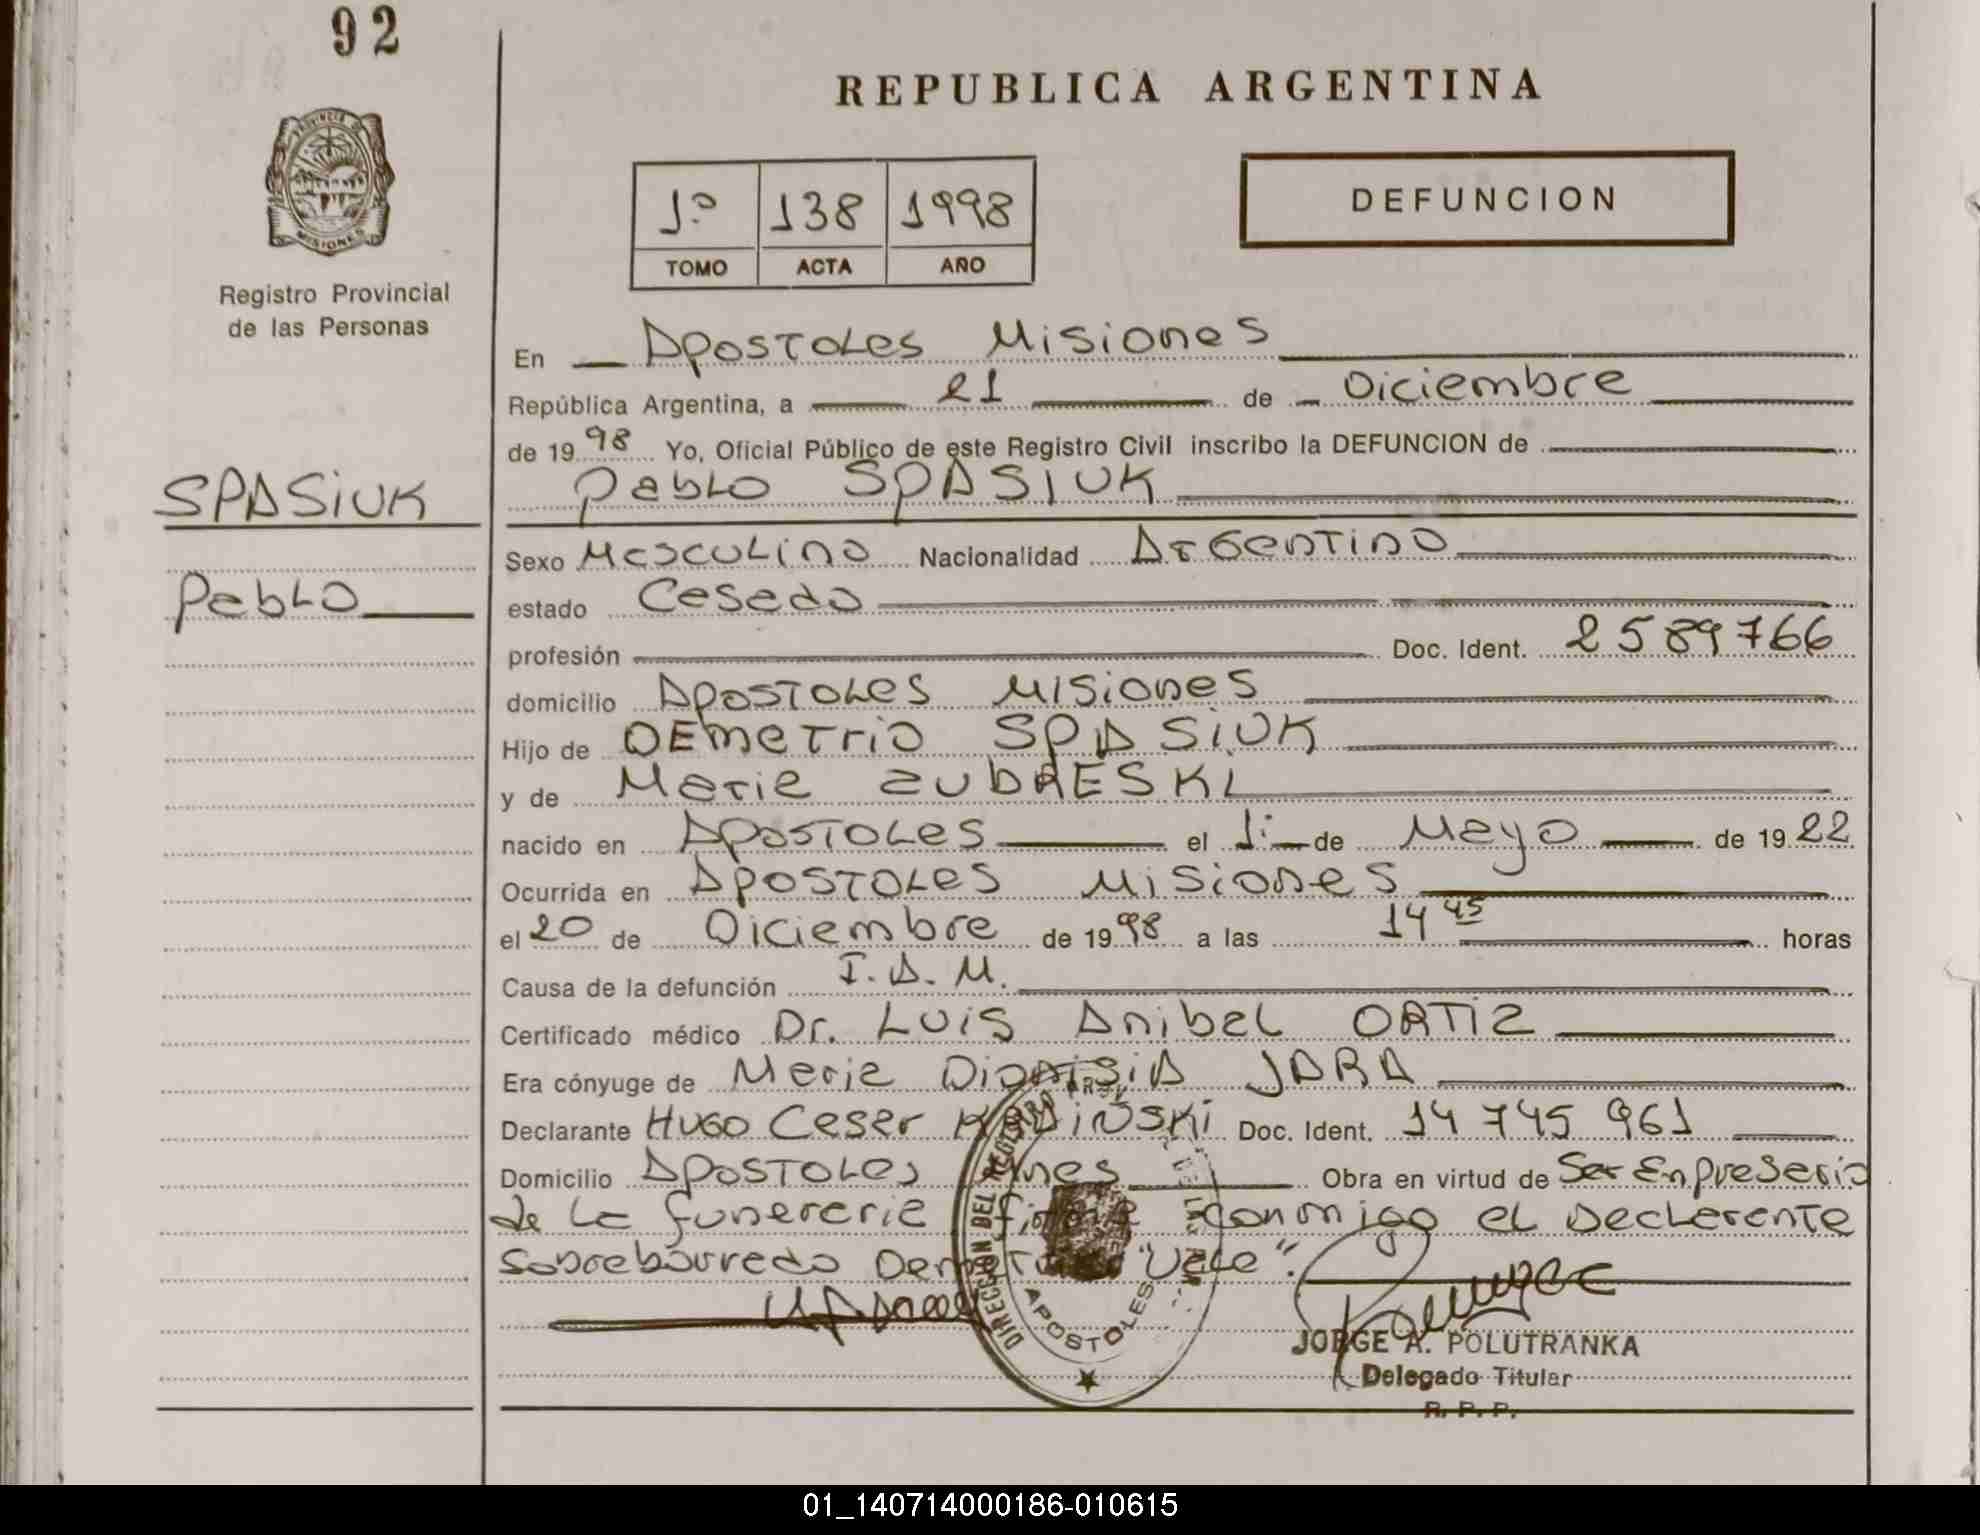 92
REPUBLICA ARGENTINA
PROVINCIA DE
MISIONES
Registro Provincial
de las Personas
1º 138 1998
TOMO ACTA AÑO
DEFUNCION
En Apostoles Misiones
República Argentina, a 21 de Diciembre
de 1998 Yo, Oficial Público de este Registro Civil inscribo la DEFUNCION de
Pablo SPASIUK
SPASIUK
Pablo
Sexo Masculino Nacionalidad Argentino
estado Casado
profesión Doc. Ident. 2589766
domicilio Apostoles Misiones
Hijo de DEmetrio SPASIUK
y de Maria ZUBRESKI
nacido en Apostoles el 1: de Mayo de 1922
Ocurrida en Apostoles Misiones
el 20 de Diciembre de 1998 a las 14 45 horas
Causa de la defunción I.A.M.
Certificado médico Dr. Luis Anibal ORTIZ
Era cónyuge de Maria Dionisia JARA
Declarante Hugo Cesar Doc. Ident. 14 745 961
Domicilio Apostoles Mnes Obra en virtud de Ser Enpresario
de la funeraria firma conmigo el Declarante
Sobreborrado Demetrio "Vale".
DIRECCION DEL REGISTRO
APOSTOLES
JORGE A. POLUTRANKA
Delegado Titular
R. P. P.
01_140714000186-010615